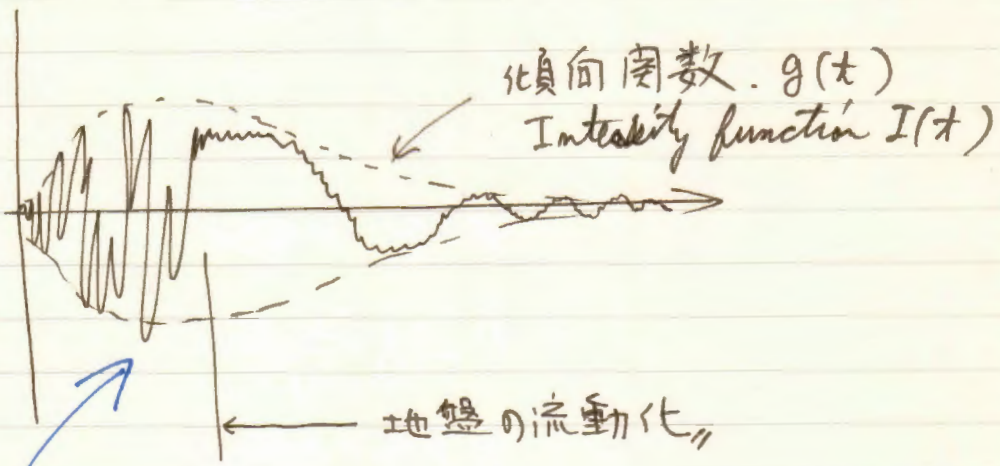 傾向関数. g(t)
Intensity function I(t)
地盤の流動化〃